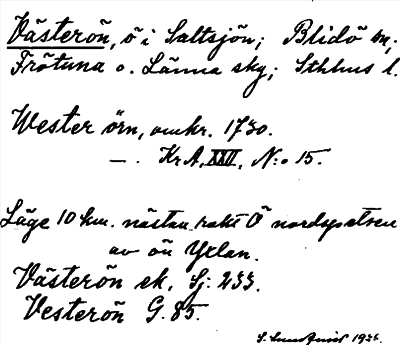 Västerön, ö i Saltsjön; Blidö sn,
Frötuna o. Länna sky; Sthlms l.
Wester örn, omkr. 1730.
—. Kr A, XXII, N:o 15.
Läge 10 km. nästan rakt Ö nordspetsen
av ön Yxlan.
Västerön ek. Sj: 233.
Vesterön G. 85.
S. 1926.